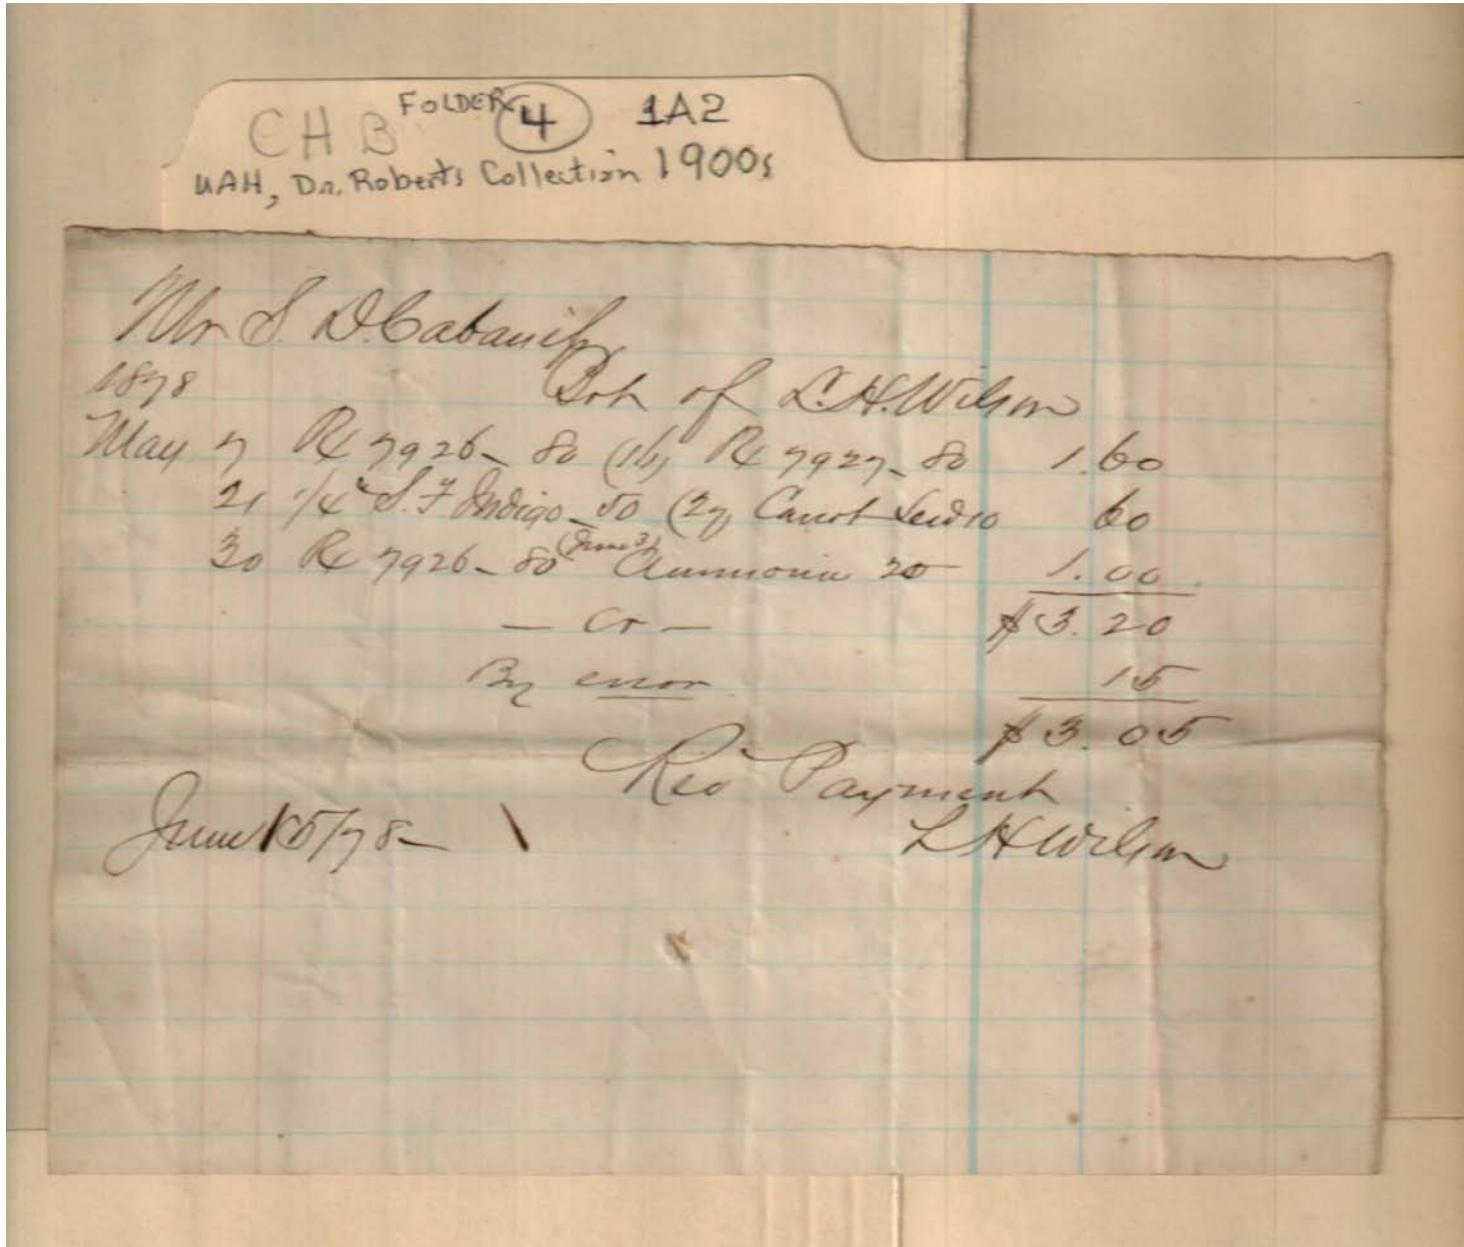 CHB FOLDER 4 1A2
UAH, Dr. Roberts Collection 1900s
Mr S. D. Cabaniss
1878 Bot of L. H. Wilson
May 7 Rx 7926 - 80 (14) Rx 7927 - 80 1.60
21 1/4 S. F Indigo - 50 (27) 10 60
30 Rx 7926 - 80 (June 3) Ammonia 20 1.00
$3.20
- Cr -
By error 15
$3.05
Rec Payment
June 15/78 - L H Wilson